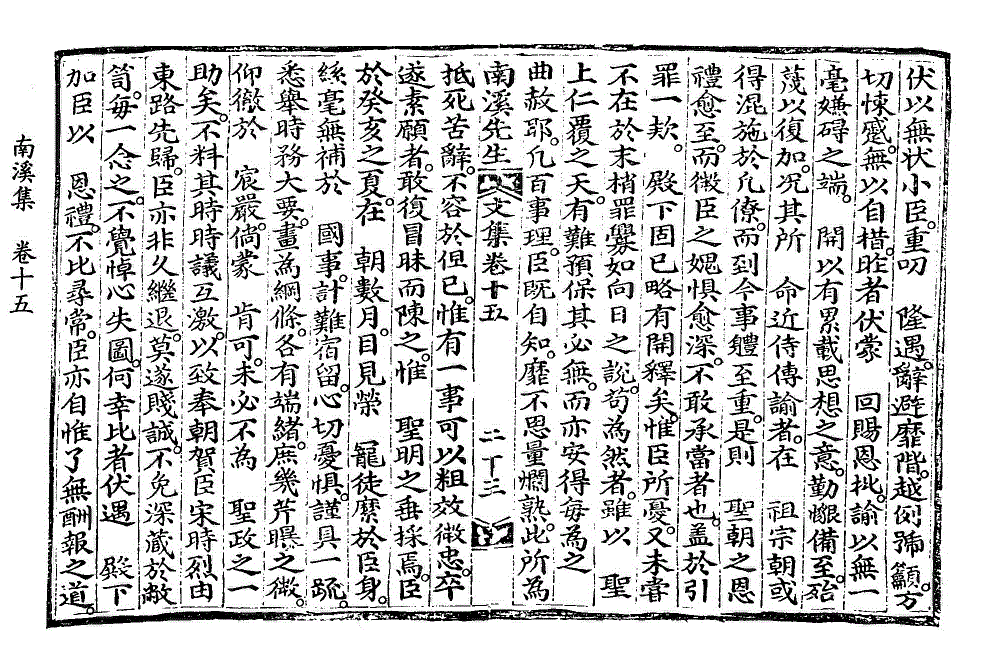 伏以無状小臣。重叨　隆遇。辭避靡階。越例號籲。方
切悚蹙。無以自措。昨者伏蒙　回賜恩批。諭以無一
毫嫌碍之端。　開以有累載思想之意。勤懇備至。殆
蔑以復加。况其所　命近侍傳諭者。在　祖宗朝或
得混施於凡僚。而到今事軆至重。是則　聖朝之恩
禮愈至。而微臣之媿惧愈深。不敢承當者也。盖於引
罪一欵。　殿下固已略有開釋矣。惟臣所憂。又未甞
不在於末梢罪釁如向日之說。苟為然者。雖以　聖
上仁覆之天。有難預保其必無。而亦安得每為之
曲赦耶。凡百事理。臣既自知。靡不思量爛熟。此所為
南溪先生文集卷十五　二十三
抵死苦辭。不容於但已。惟有一事可以粗效微忠。卒
遂素願者。敢復冒昧而陳之。惟　聖明之垂採焉。臣
於癸亥之夏。在　朝數月。目見榮　寵徒縻於臣身。
絲毫無補於　國事。計難宿留。心切憂惧。謹具一疏。
悉舉時務大要。畫為綱條。各有端緖。庶幾芹曝之微。
仰徹於　宸嚴。倘蒙　肯可。未必不為　聖政之一
助矣。不料其時時議互激。以致奉朝賀臣宋時烈由
東路先歸。臣亦非久繼退。莫遂賤誠。不免深藏於敝
笥。每一念之。不覺悼心失圖。何幸比者伏遇　殿下
加臣以　恩禮。不比尋常。臣亦自惟了無酬報之道。
南溪集　卷十五